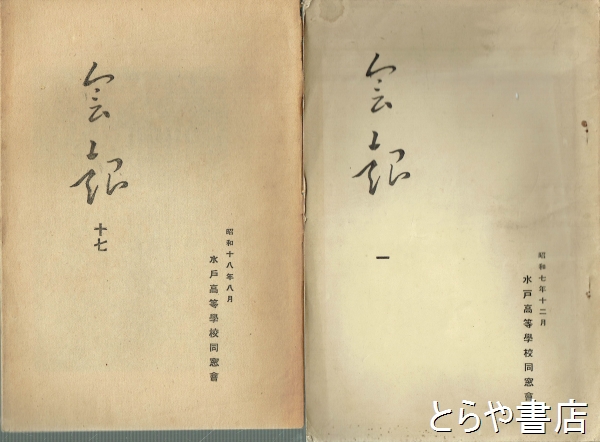 会報
十七
昭和十八年八月
水戸高等學校同窓會
会報
一
昭和七年十二月
水戸高等學校同窓會
とらや書店